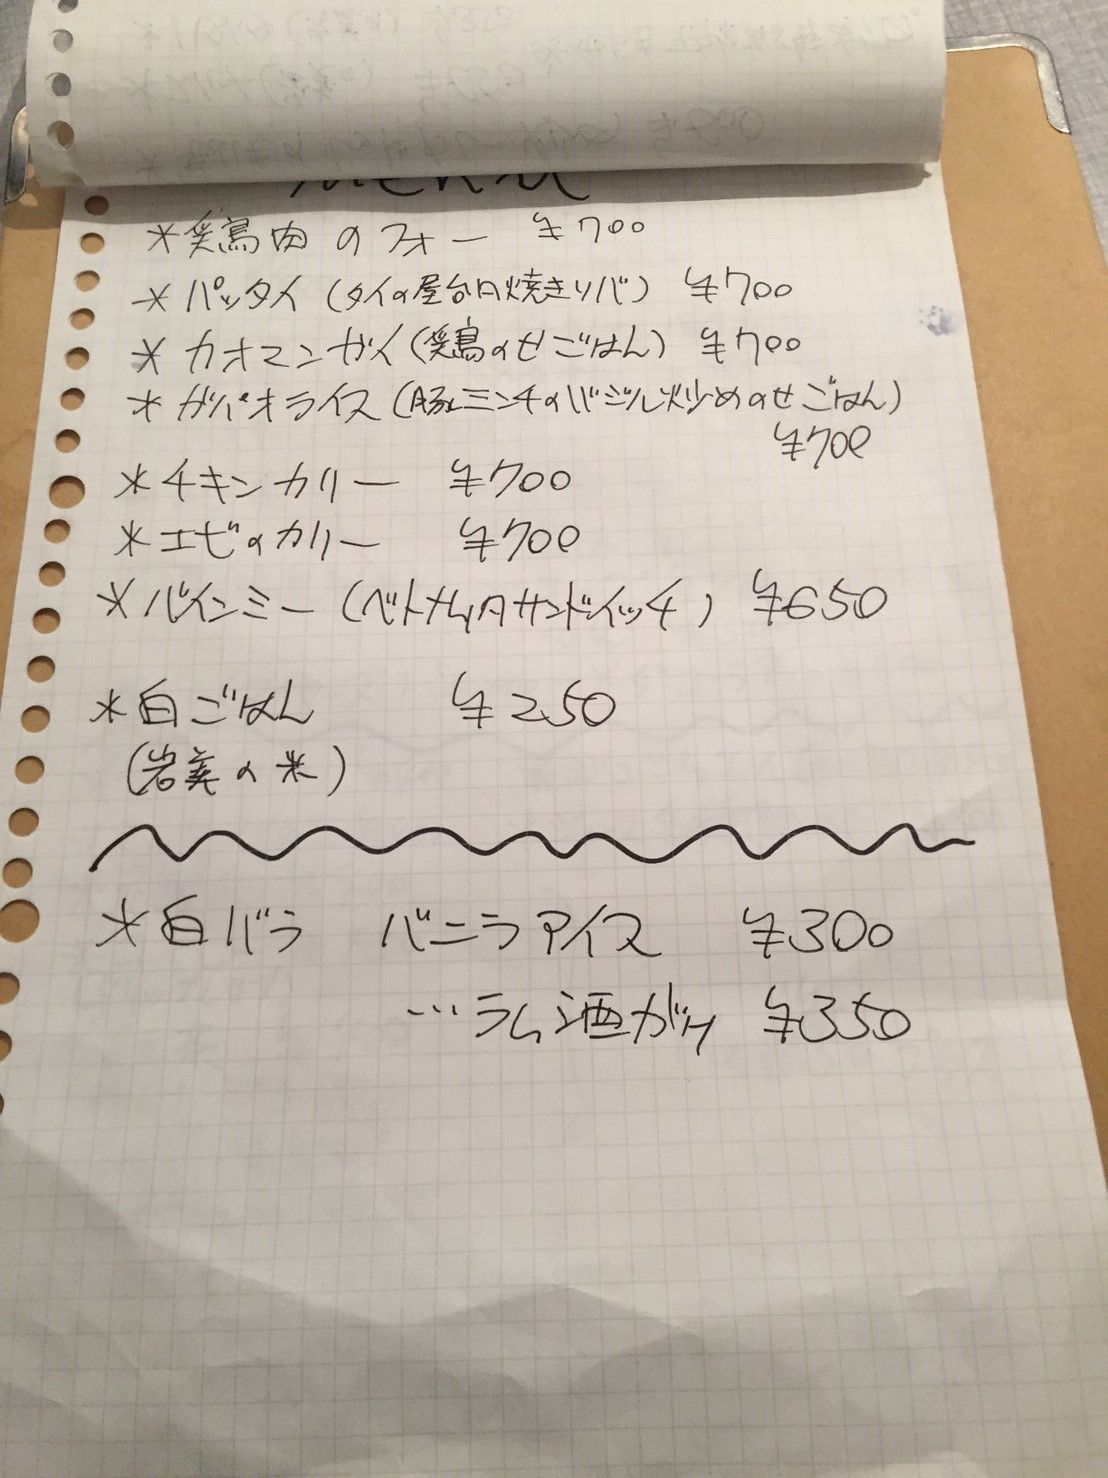 MENU
*鶏肉のフォー ¥700
*パッタイ(タイの屋台風焼きソバ) ¥700
*カオマンガイ(鶏のせごはん) ¥700
*ガパオライス(豚ミンチのバジル炒めのせごはん)
¥700
*チキンカリー ¥700
*エビのカリー ¥700
*バインミー(ベトナム風サンドイッチ) ¥650
*白ごはん ¥250
(岩美の米)
*白バラ バニラアイス ¥300
…ラム酒がけ ¥350